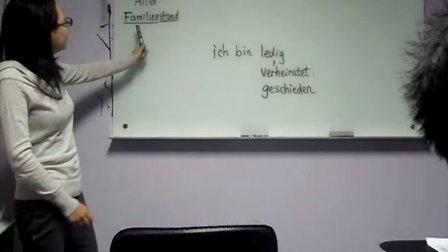 Alter
Familienstand
ich bin ledig,
verheiratet
geschieden